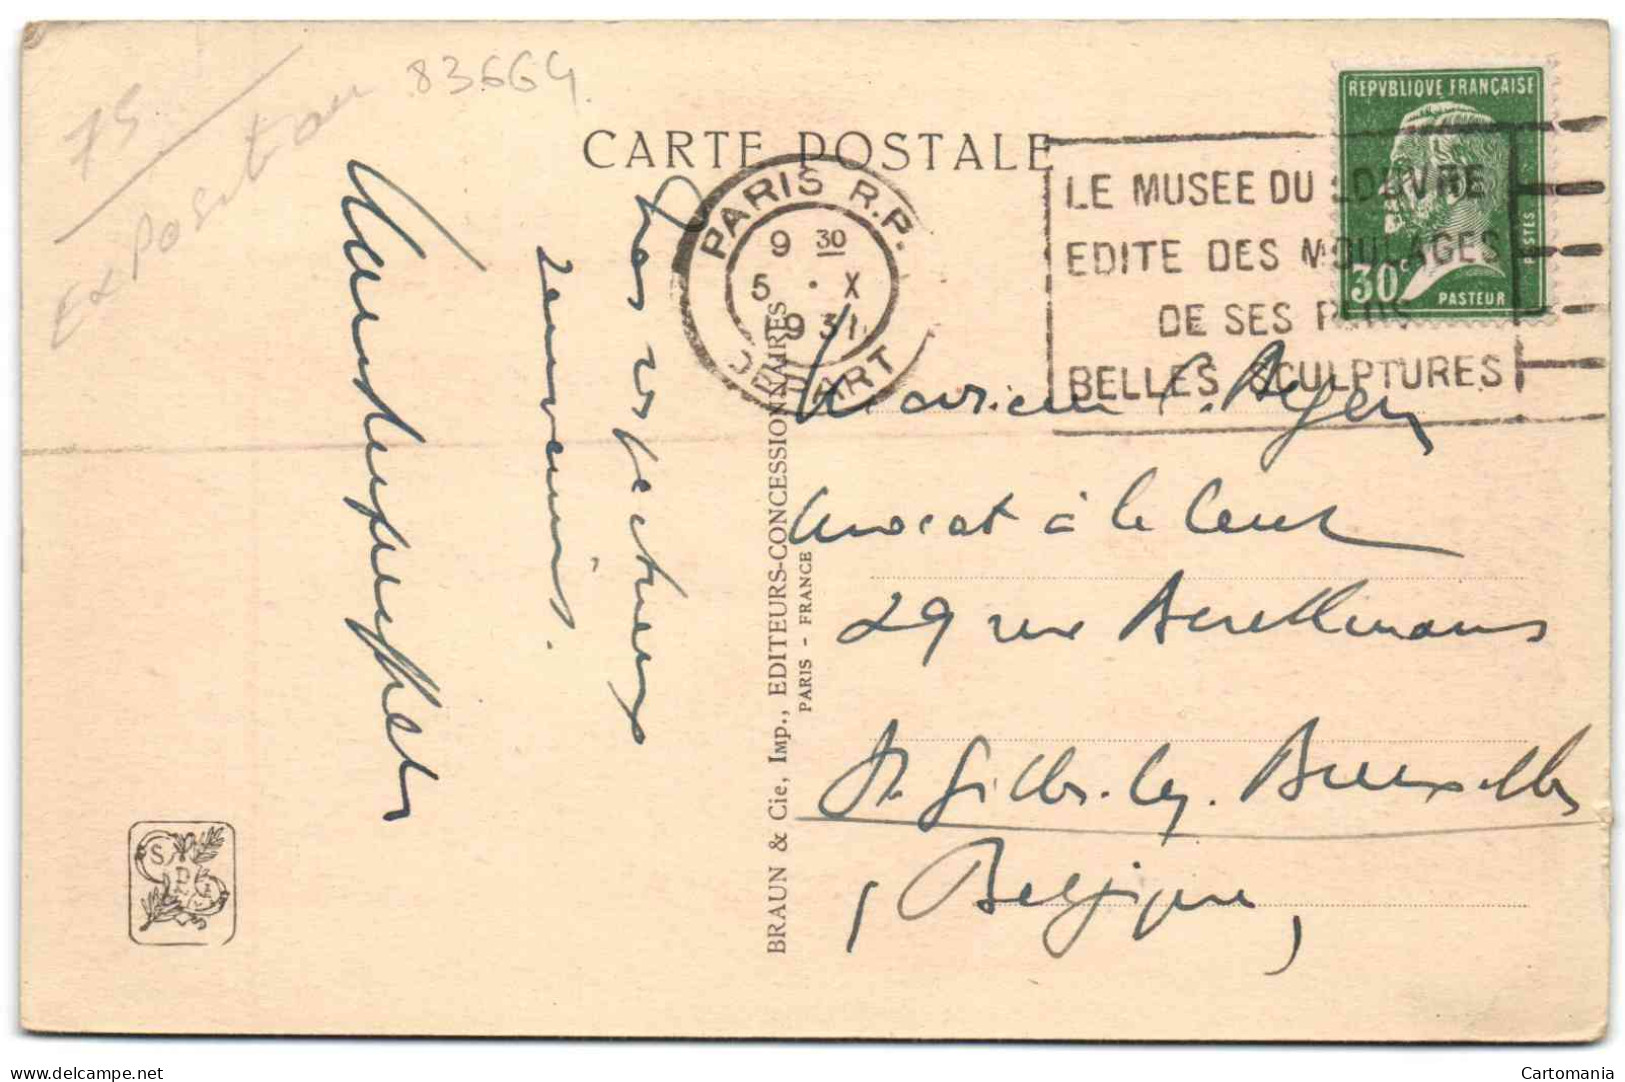 75
Exposition
83664
CARTE POSTALE
PARIS R.P.
9 30
5 · X
1931
DEPART
LE MUSEE DU LOUVRE
EDITE DES MOULAGES
DE SES PLUS
BELLES SCULPTURES
REPVBLIQVE FRANÇAISE
POSTES
30c
PASTEUR
Très respectueux
souvenir.
BRAUN & Cie, IMP., EDITEURS-CONCESSIONNAIRES
PARIS - FRANCE
Monsieur
Avocat à la Cour
29 rue
St Gilles-lez-Bruxelles
(Belgique)
delcampe.net
Cartomania